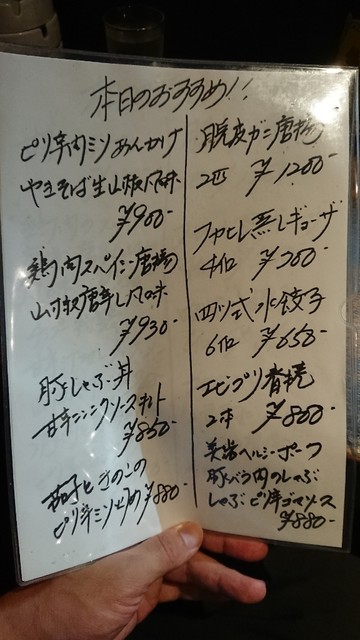 本日のおすすめ!!
ピリ辛肉ミソあんかけ
やきそば生山椒風味
¥900-
鶏肉スペイシー唐揚
山椒唐辛し風味
¥930-
豚しゃぶ丼
甘辛ニンニクソース
¥850-
茄子ときのこの
ピリ辛ミソ炒め ¥880-
脱皮ガニ唐揚
2匹 ¥1200-
フカヒレ蒸しギョーザ
4ケ ¥200-
四川式水餃子
6ケ ¥650-
エビプリ春捲
2本 ¥800-
美崙ヘルシーポーク
豚バラ肉のしゃぶ
しゃぶピリ辛ゴマソース
¥880-